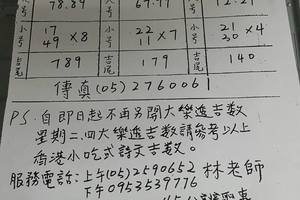 78.89
小号 17 49 ×8 小号 22 11 ×7 小号 21 30 ×4
吉尾 789 吉尾 179 吉尾
傳真(05)2760061
PS. 自即日起不再另開大樂透吉数
星期二.四大樂透吉数請參考以上
香港小吃式詩文吉数。
服務電話:上午(05)2590652 林老師
下午0953539776